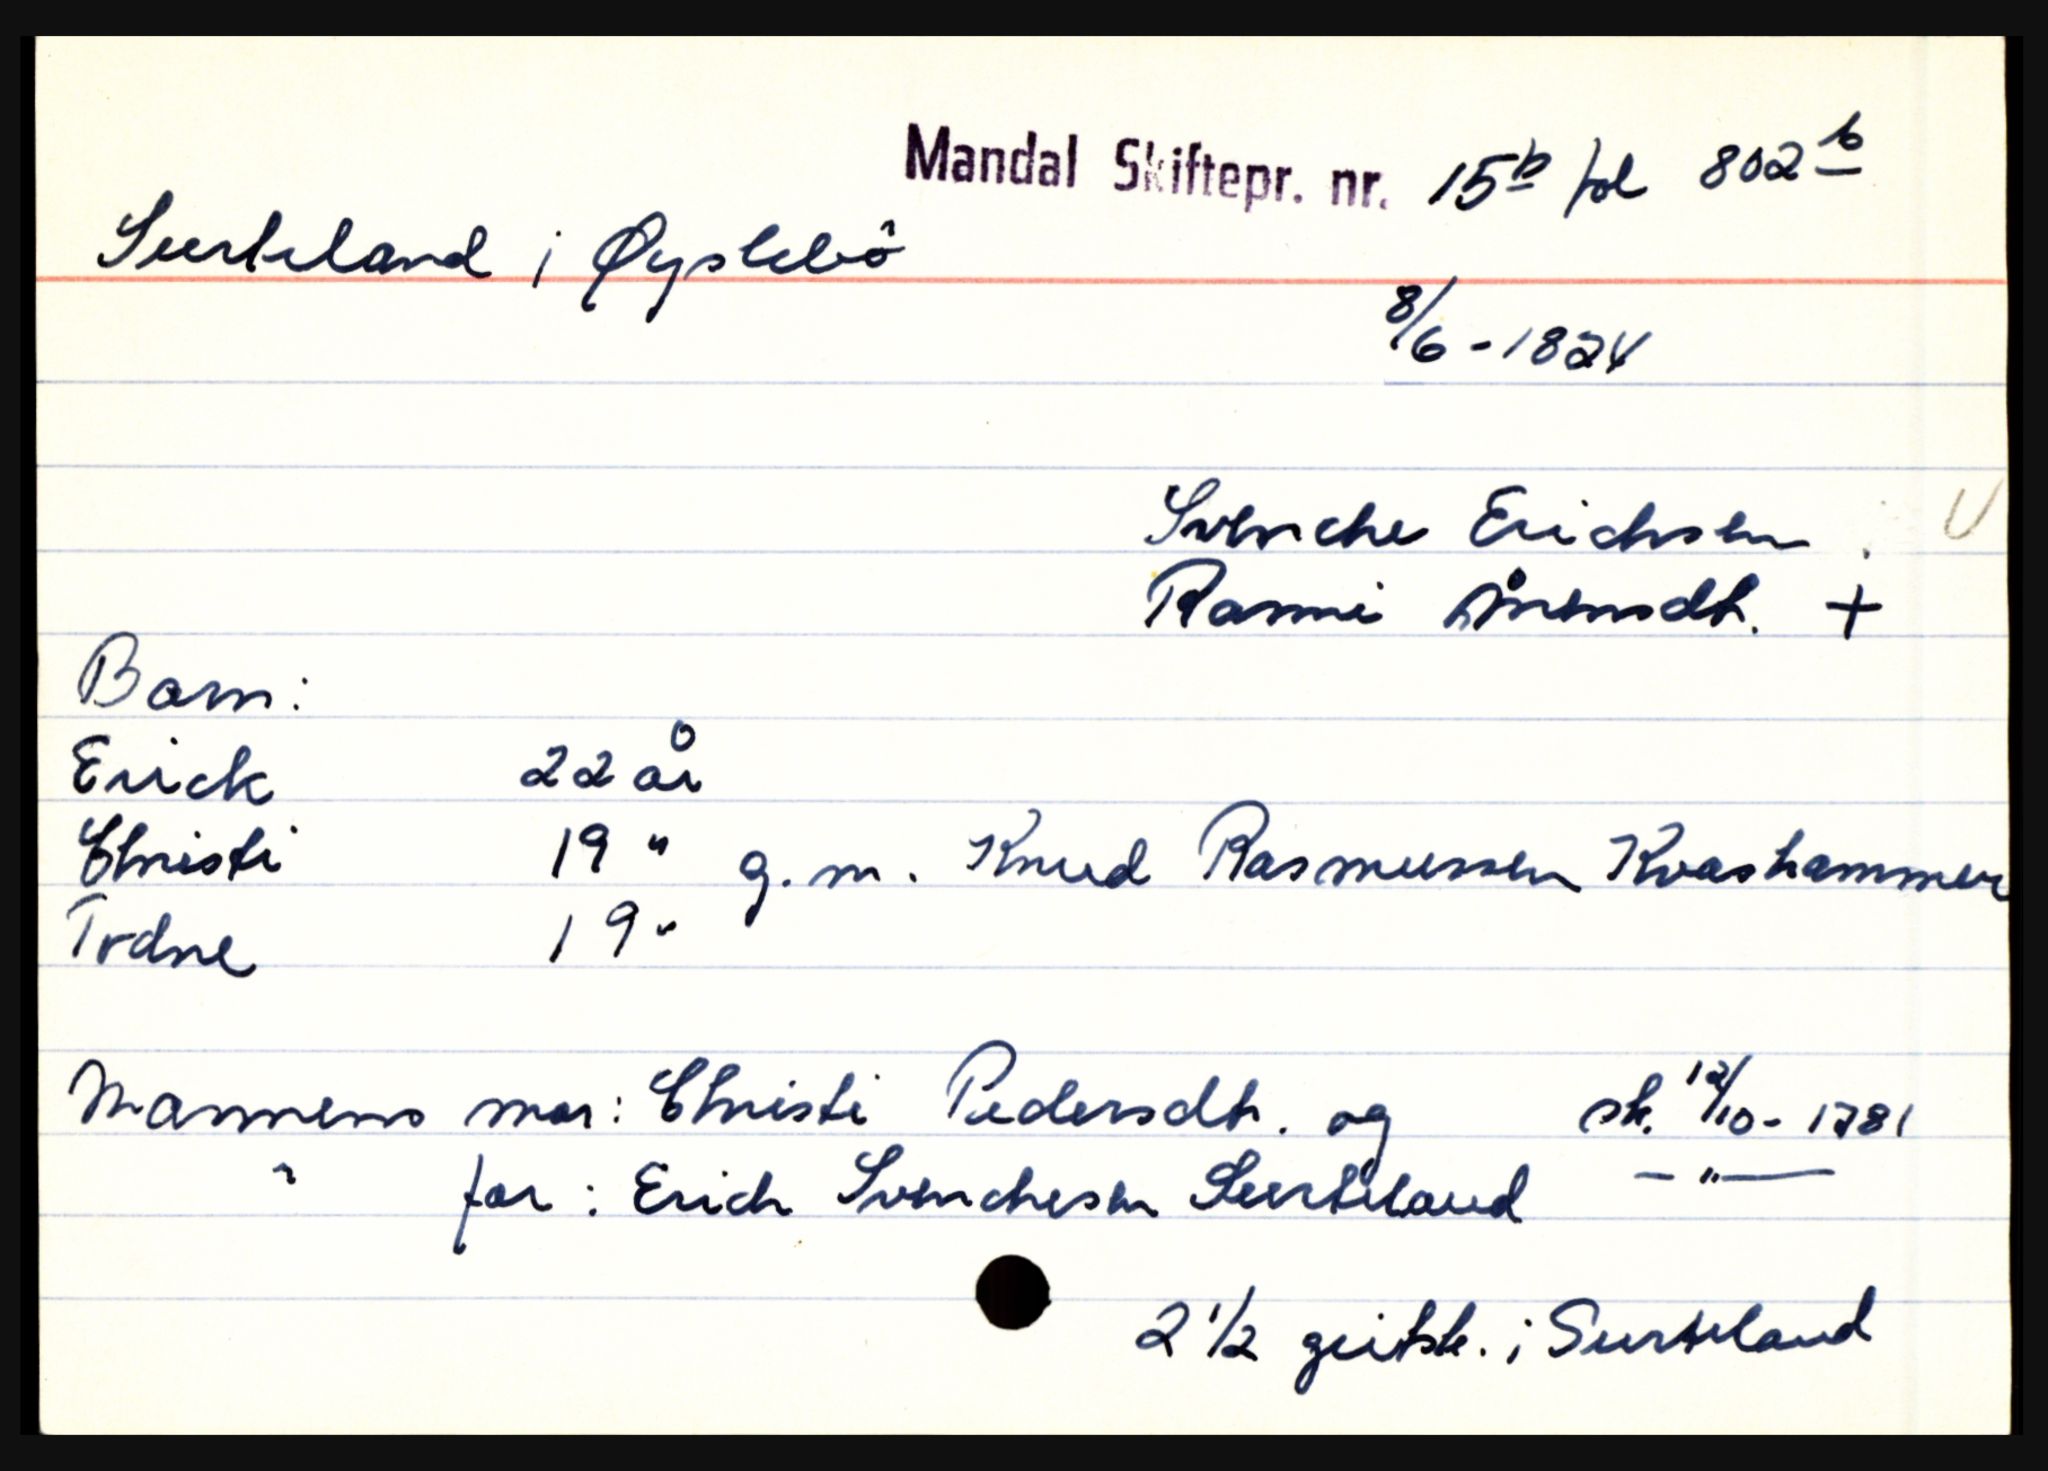 Mandal Skiftepr. nr. 15b fol 802b
Surteland i Øyslebö
8/6-1824
Svenche Erichsen
Ranni Ånensdt. +
Barn:
Erick 22 år
Christi 19 " g.m. Knud Rasmussen Kvashammer
Trdne 19 "
Mannens mor: Christi Pedersdt. og sk. 12/10-1781
" far: Erich Svenchesen Surteland — " —
2 1/2 geitsk. i Surteland